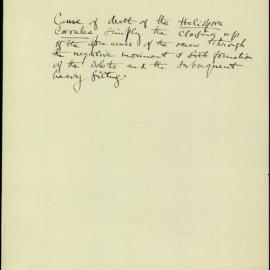 Cause of death of the Heliopora
Coerulea simply the closing up
of the area access of the ocean through
the negative movement & formation
of the islets and the subsequent
heavy silting.